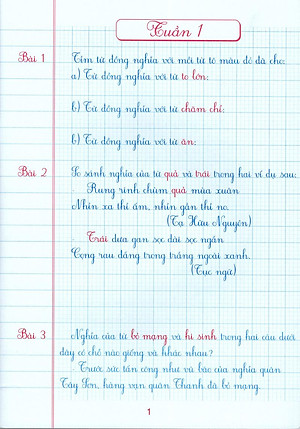 Tuần 1
Bài 1 Tìm từ đồng nghĩa với mỗi từ tô màu đỏ đã cho:
a) Từ đồng nghĩa với từ to lớn:
b) Từ đồng nghĩa với từ chăm chỉ:
b) Từ đồng nghĩa với từ ăn:
Bài 2 So sánh nghĩa của từ quả và trái trong hai ví dụ sau:
- Rung rinh chùm quả mùa xuân
Nhìn xa thì ấm, nhìn gần thì no.
(Tạ Hữu Nguyên)
- Trái dưa gan sọc dài sọc ngắn
Cọng rau dắng trong trắng ngoài xanh.
(Tục ngữ)
Bài 3 Nghĩa của từ bỏ mạng và hi sinh trong hai câu dưới
đây có chỗ nào giống và khác nhau?
- Trước sức tấn công như vũ bão của nghĩa quân
Tây Sơn, hàng vạn quân Thanh đã bỏ mạng.
1